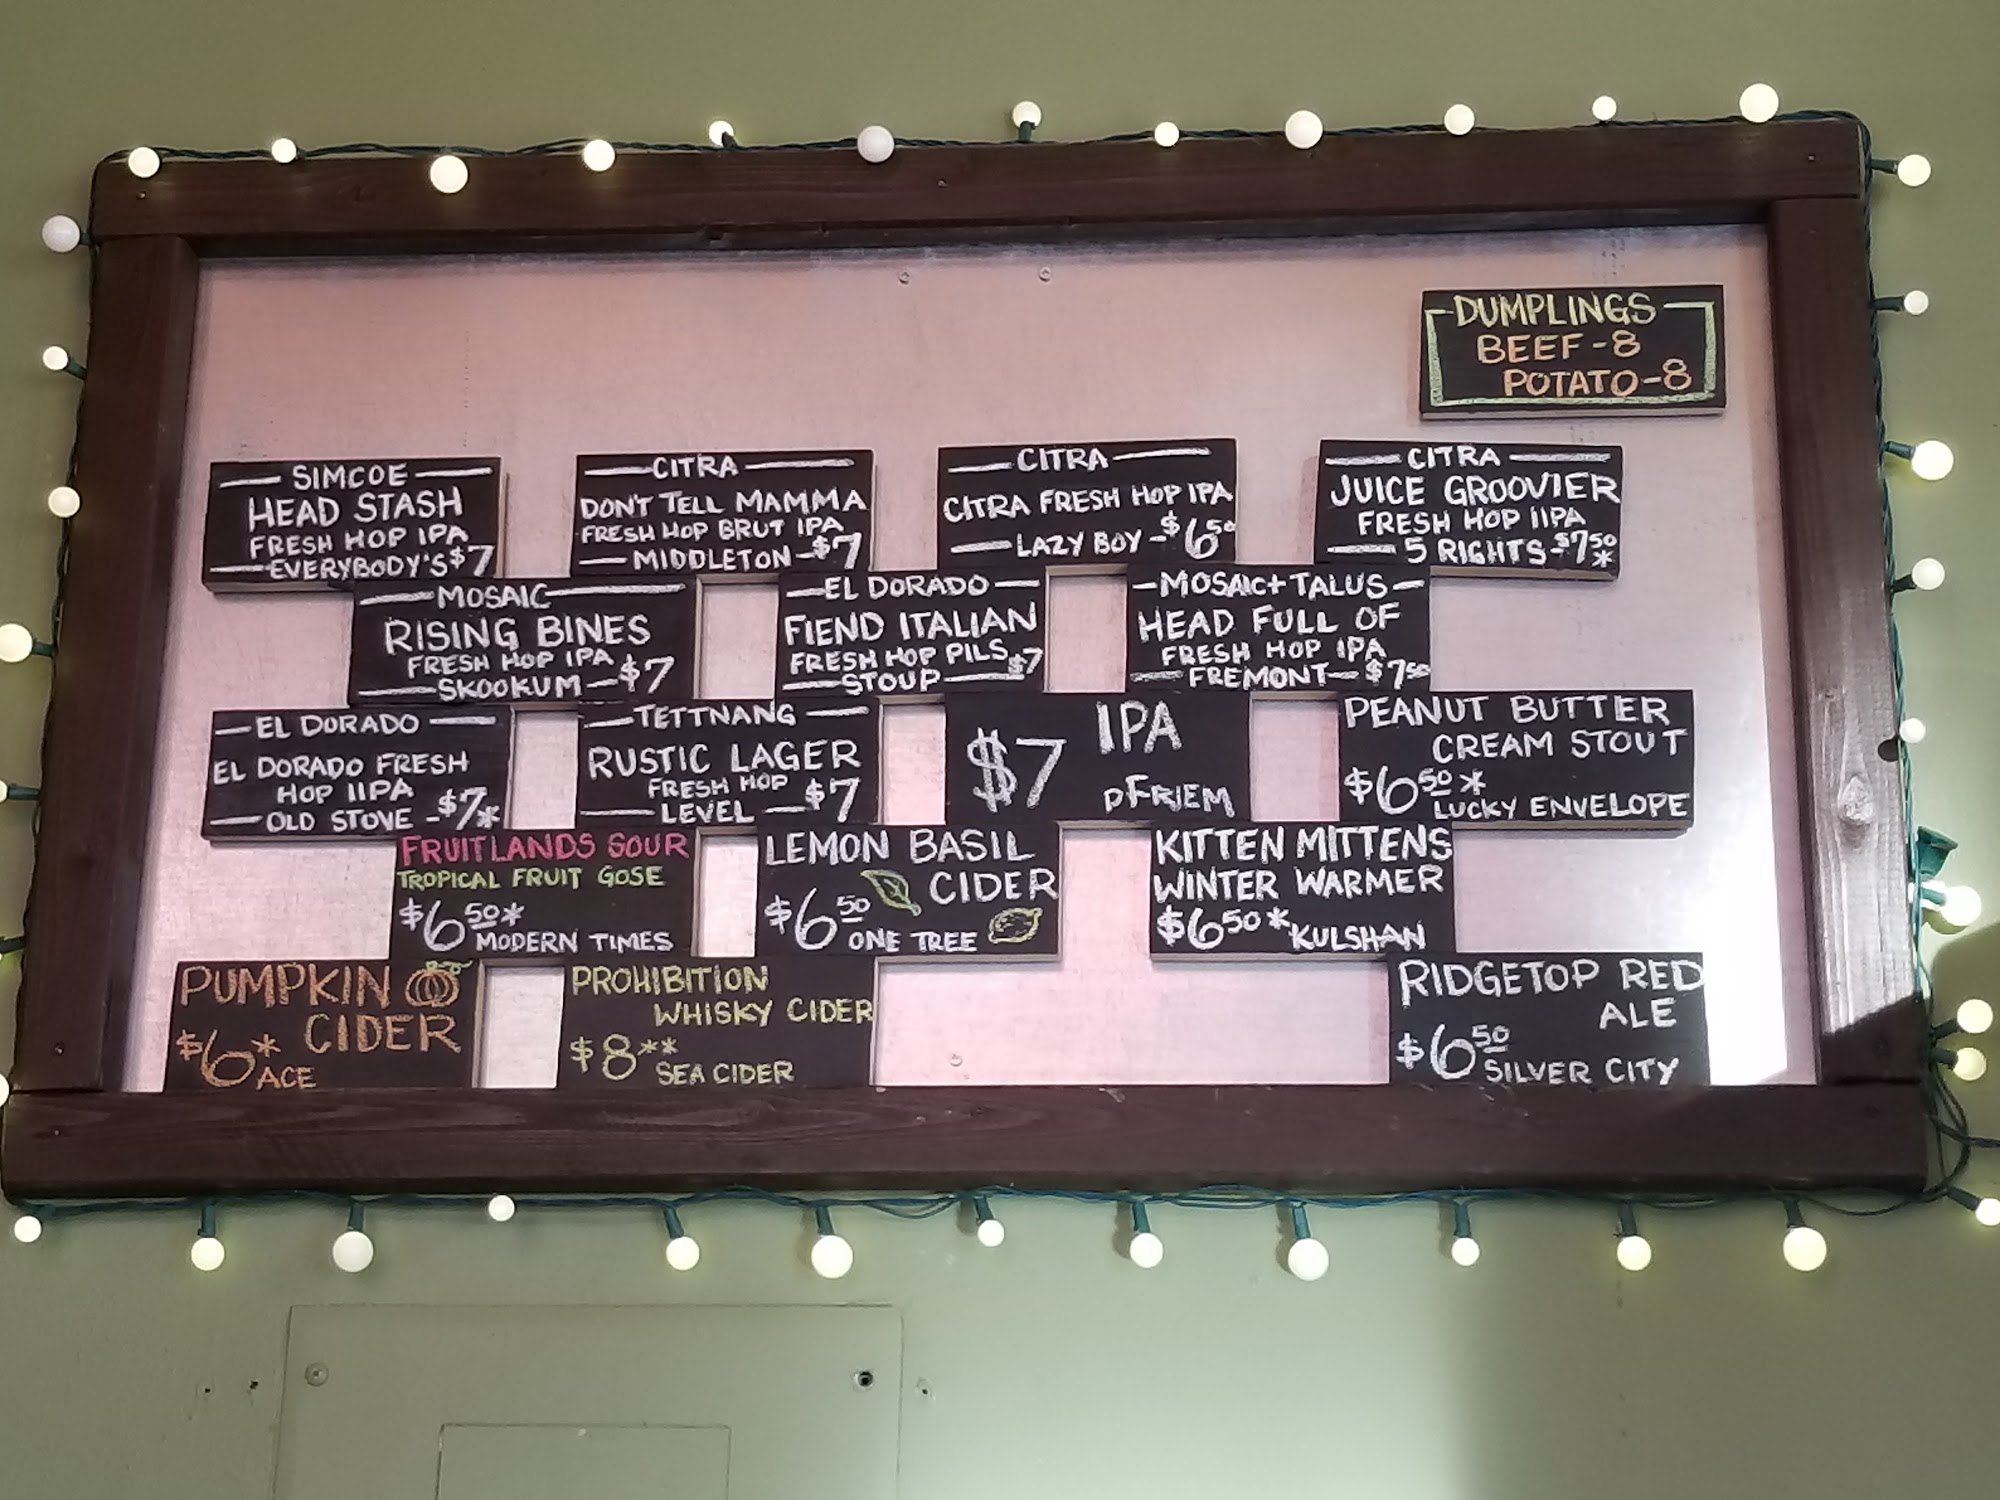 DUMPLINGS
BEEF-8
POTATO-8
SIMCOE
HEAD STASH
FRESH HOP IPA
EVERYBODY'S $7
CITRA
DON'T TELL MAMMA
FRESH HOP BRUT IPA
MIDDLETON - $7
CITRA
CITRA FRESH HOP IPA
LAZY BOY - $6.50
CITRA
JUICE GROOVIER
FRESH HOP IIPA
5 RIGHTS - $7.50 *
MOSAIC
RISING BINES
FRESH HOP IPA
SKOOKUM - $7
EL DORADO
FIEND ITALIAN
FRESH HOP PILS
STOUP $7
MOSAIC + TALUS
HEAD FULL OF
FRESH HOP IPA
FREMONT - $7.50
EL DORADO
EL DORADO FRESH
HOP IIPA
OLD STOVE - $7*
TETTNANG
RUSTIC LAGER
FRESH HOP
LEVEL - $7
IPA
$7
PFRIEM
PEANUT BUTTER
CREAM STOUT
$6 50 *
LUCKY ENVELOPE
FRUITLANDS SOUR
TROPICAL FRUIT GOSE
$6 50 *
MODERN TIMES
LEMON BASIL
CIDER
$6 50
ONE TREE
KITTEN MITTENS
WINTER WARMER
$6 50 * KULSHAN
PUMPKIN
CIDER
$6*
ACE
PROHIBITION
WHISKY CIDER
$8**
SEA CIDER
RIDGETOP RED
ALE
$6 50
SILVER CITY